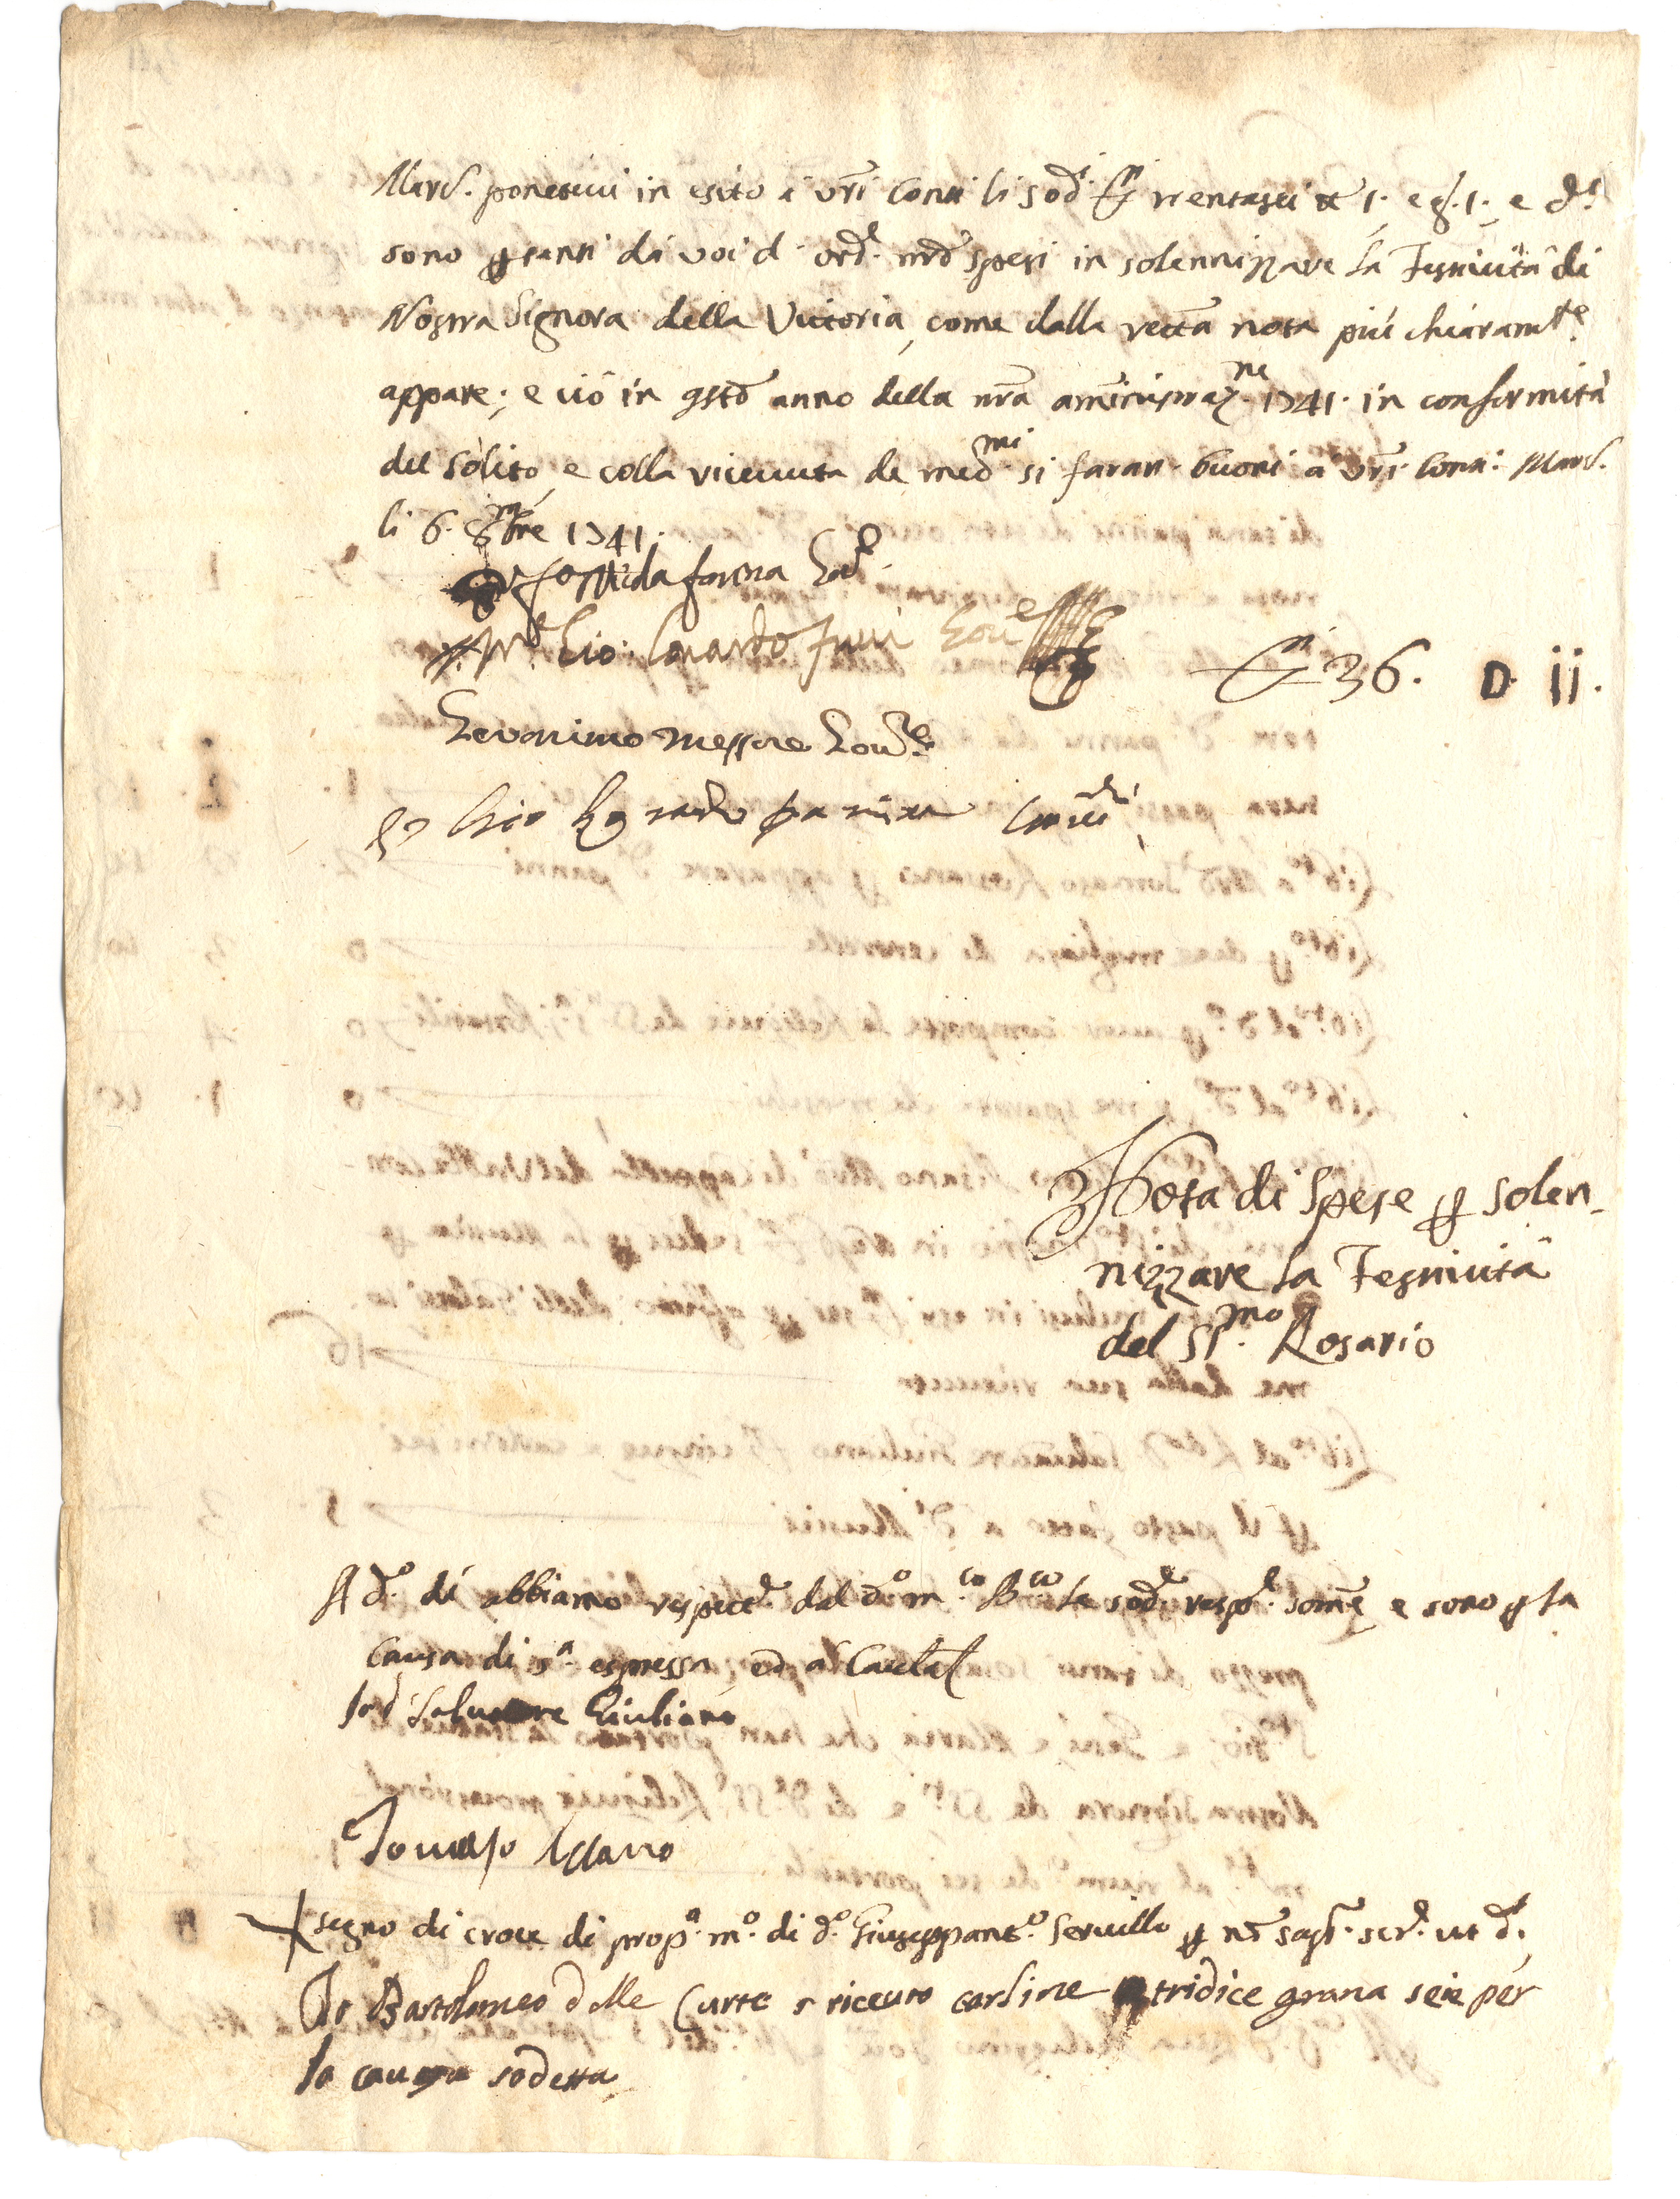 ponetevi in esito a vri Conti li sodi trentasei tt 1. e g. 1. e di
sono p tanti da voi d' ord. nro spesi in solennizzare la Festività di
Nostra Signora della Vittoria, come dalla rettâ nota più chiaramte
appare; e ciò in qsto anno della nra amministraz.ne 1741. in conformità
del sòlito, e colla ricevuta de medmi si faran. buoni a vri Conti.
li 6. 8bre 1741.
farina
Gio: Conardo
36. 0 11.
Geronimo Messore
Gio farina
Nota di Spese p solen-
nizzare la Festività
del SS.mo Rosario
A do. dì abbiamo respett. dal do. m.co B.eo le sodte. respe. somē e sono p la
Causa di sa. espressa, ed a Cautel
Io d Salvatore Giuliano
Tomaso
segno di croce di propa. mo. di do. Giuseppanto. Servillo p nō sapr. scr. ut d.
Io Bartolomeo delle Curte o riceuto carline tridice grana seie per
la causa sodetta